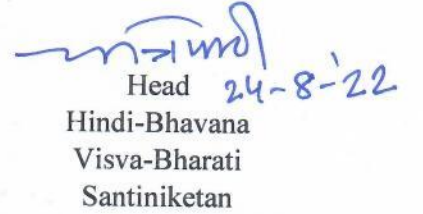 Head 24-8-'22
Hindi-Bhavana
Visva-Bharati
Santiniketan